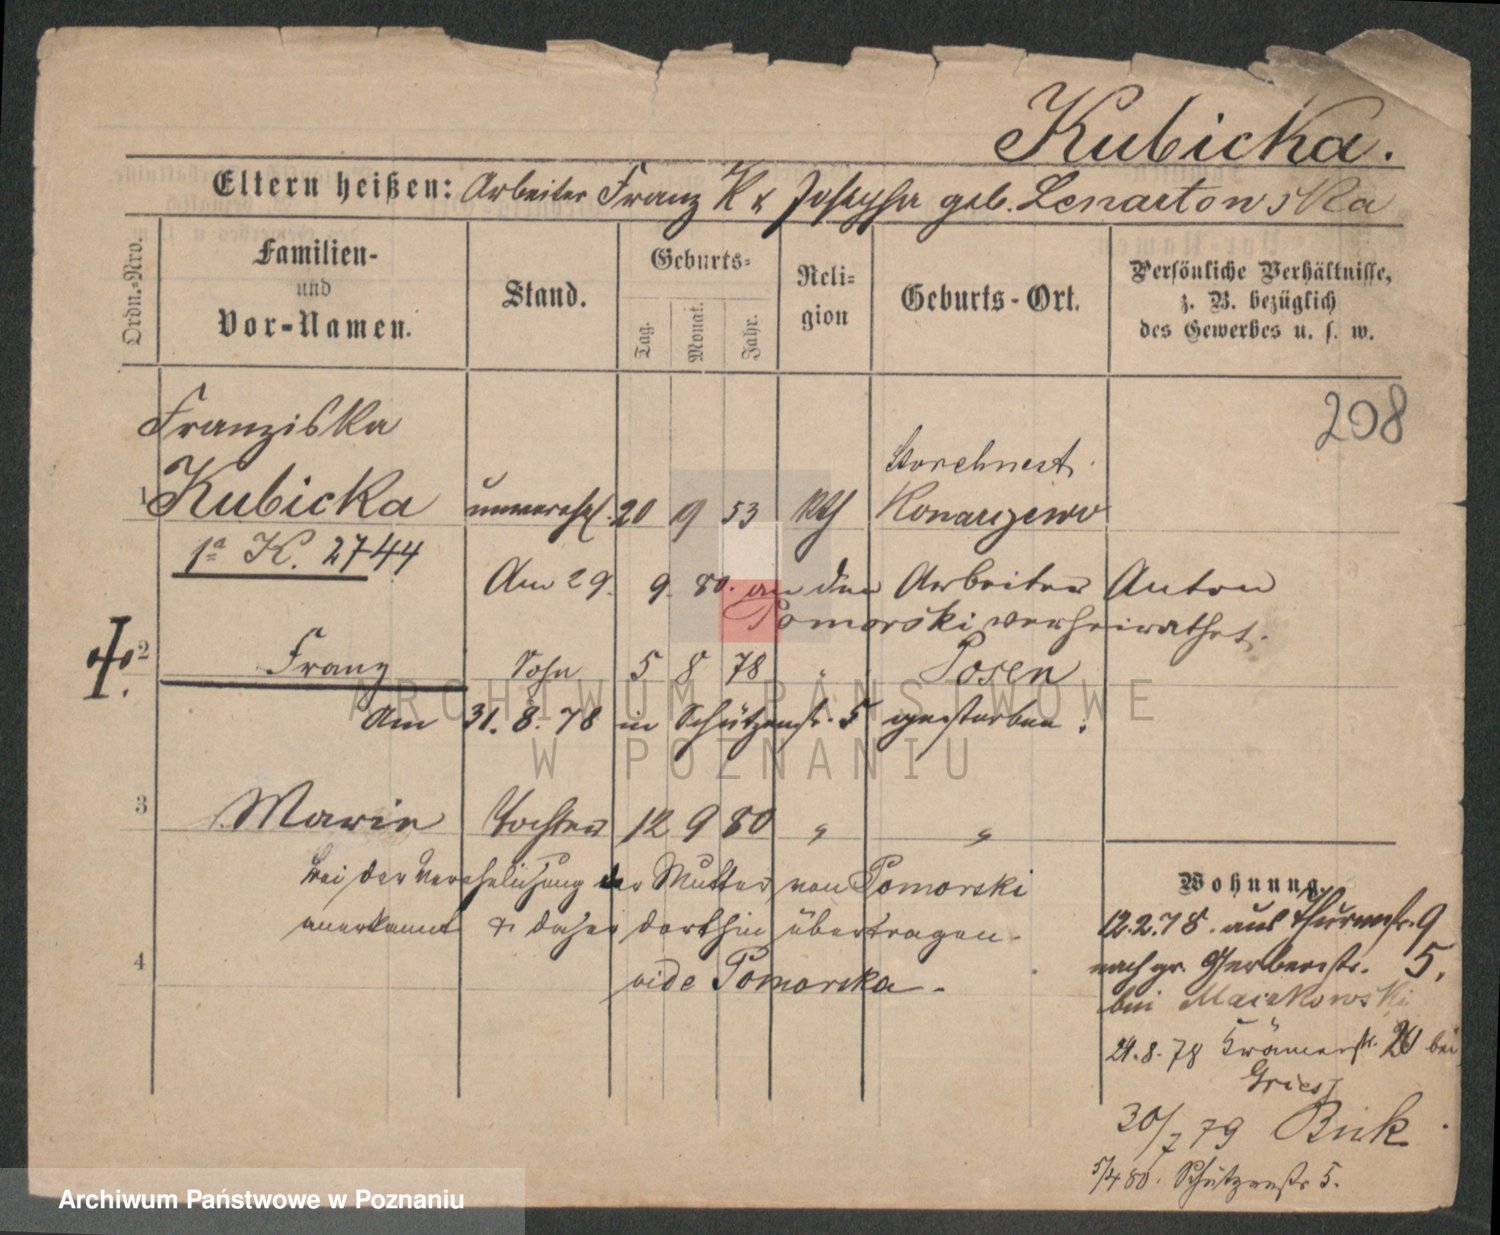 Kubicka.
Eltern heißen: Arbeiter Franz K & Josepha geb. Lenartowska
Ordn.-Nro.
Familien-
und
Vor-Namen.
Stand.
Geburts-
Tag.
Monat.
Jahr.
Reli-
gion
Geburts-Ort.
Persönliche Verhältnisse,
z. B. bezüglich
des Gewerbes u. s. w.
208
Franziska
Storchnest
1 Kubicka unverehl. 20 9 53 Kth Konarzewo
1a K. 2744
Am 29. 9. 80. an den Arbeiter Anton
Pomorski verheirathet.
2 Franz Sohn 5 8 78 " Posen
Am 31. 8. 78 in Schützenstr. 5 gestorben.
3 Marie Tochter 12 9 80 " "
bei der Verehelichung der Mutter von Pomorski
anerkannt & daher dorthin übertragen.
4
vide Pomorska.
Wohnung.
12.2.78. aus Thurmstr. 9
nach gr. Gerberstr. 5.
bei Maciekowski
24.8.78 Krämerstr. 20 bei
30/7 79 Buk
5/4 80. Schützenstr 5.
ARCHIWUM PAŃSTWOWE
W POZNANIU
Archiwum Państwowe w Poznaniu